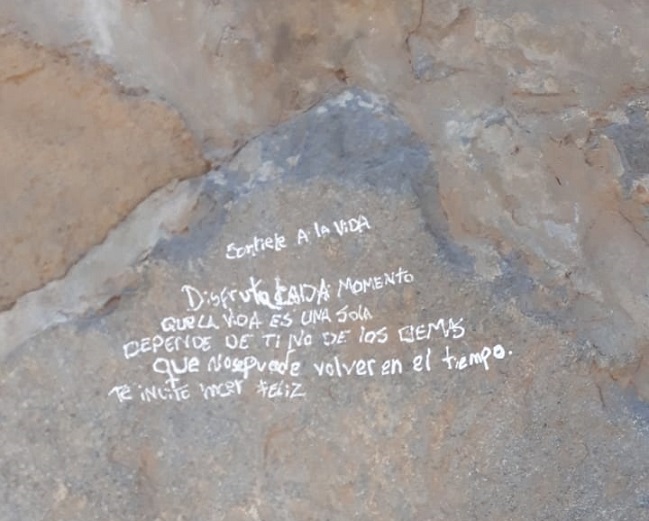 Sonriele A la ViDA
Disfruta CADA MOMENTO
QUE LA ViDA ES UNA SOlA
DEPENDE DE TI NO DE lOS DEMAS
que nosepuede volver en el tiempo.
TE iNVITE FELIZ